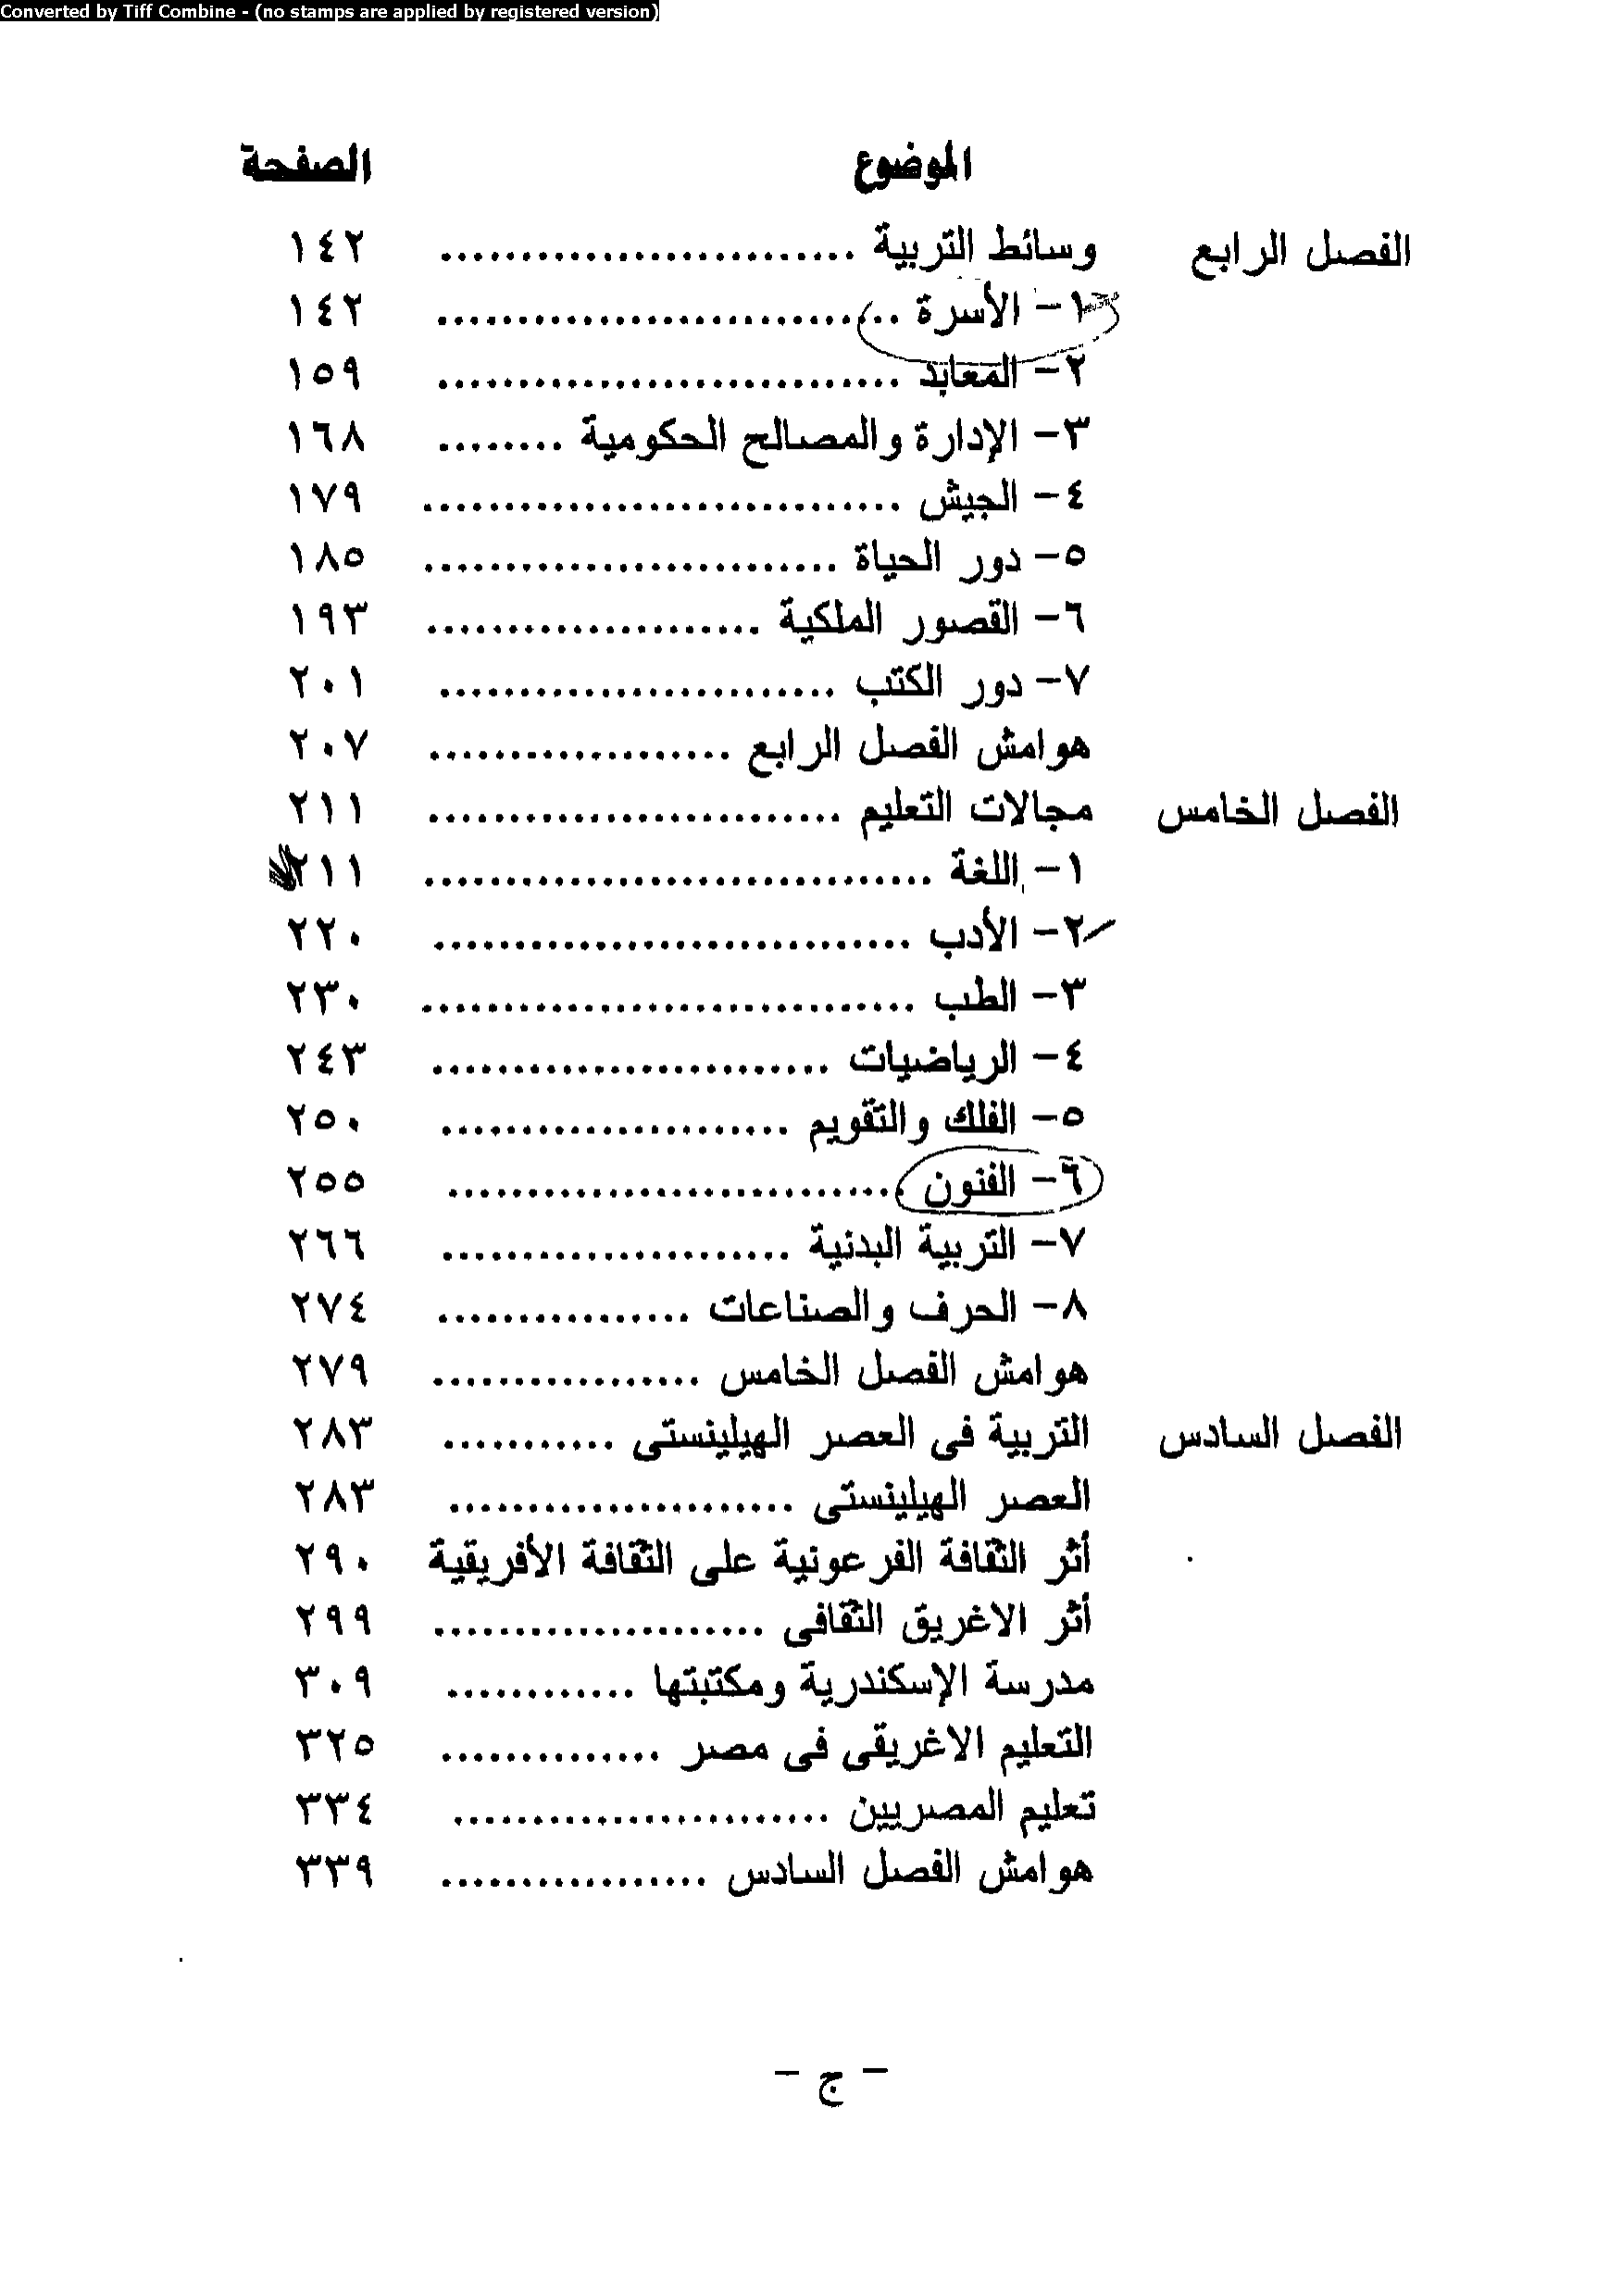 Converted by Tiff Combine - (no stamps are applied by registered version)
الموضوع الصفحة
الفصل الرابع وسائط التربية .......................... ١٤٢
١- الأسرة ............................. ١٤٢
٢- المعابد ............................. ١٥٩
٣- الإدارة والمصالح الحكومية ........ ١٦٨
٤- الجيش .............................. ١٧٩
٥- دور الحياة .......................... ١٨٥
٦- القصور الملكية ..................... ١٩٣
٧- دور الكتب ......................... ٢٠١
هوامش الفصل الرابع ................... ٢٠٧
الفصل الخامس مجالات التعليم .......................... ٢١١
١- اللغة ................................ ٢١١
٢- الأدب .............................. ٢٢٠
٣- الطب ............................... ٢٣٠
٤- الرياضيات ......................... ٢٤٣
٥- الفلك والتقويم ...................... ٢٥٠
٦- الفنون ............................. ٢٥٥
٧- التربية البدنية ...................... ٢٦٦
٨- الحرف والصناعات ................ ٢٧٤
هوامش الفصل الخامس ................. ٢٧٩
الفصل السادس التربية فى العصر الهيلينستى ........... ٢٨٣
العصر الهيلينستى ...................... ٢٨٣
أثر الثقافة الفرعونية على الثقافة الأفريقية ٢٩٠
أثر الاغريق الثقافى ..................... ٢٩٩
مدرسة الإسكندرية ومكتبتها ............ ٣٠٩
التعليم الاغريقى فى مصر .............. ٣٢٥
تعليم المصريين ........................ ٣٣٤
هوامش الفصل السادس ................. ٣٣٩
- ج -